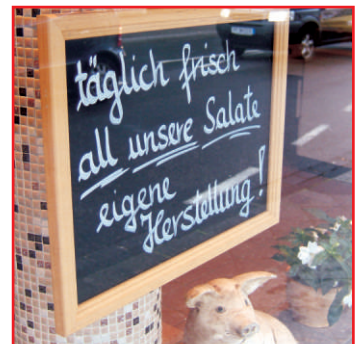 täglich frisch
all unsere Salate
eigene
Herstellung!